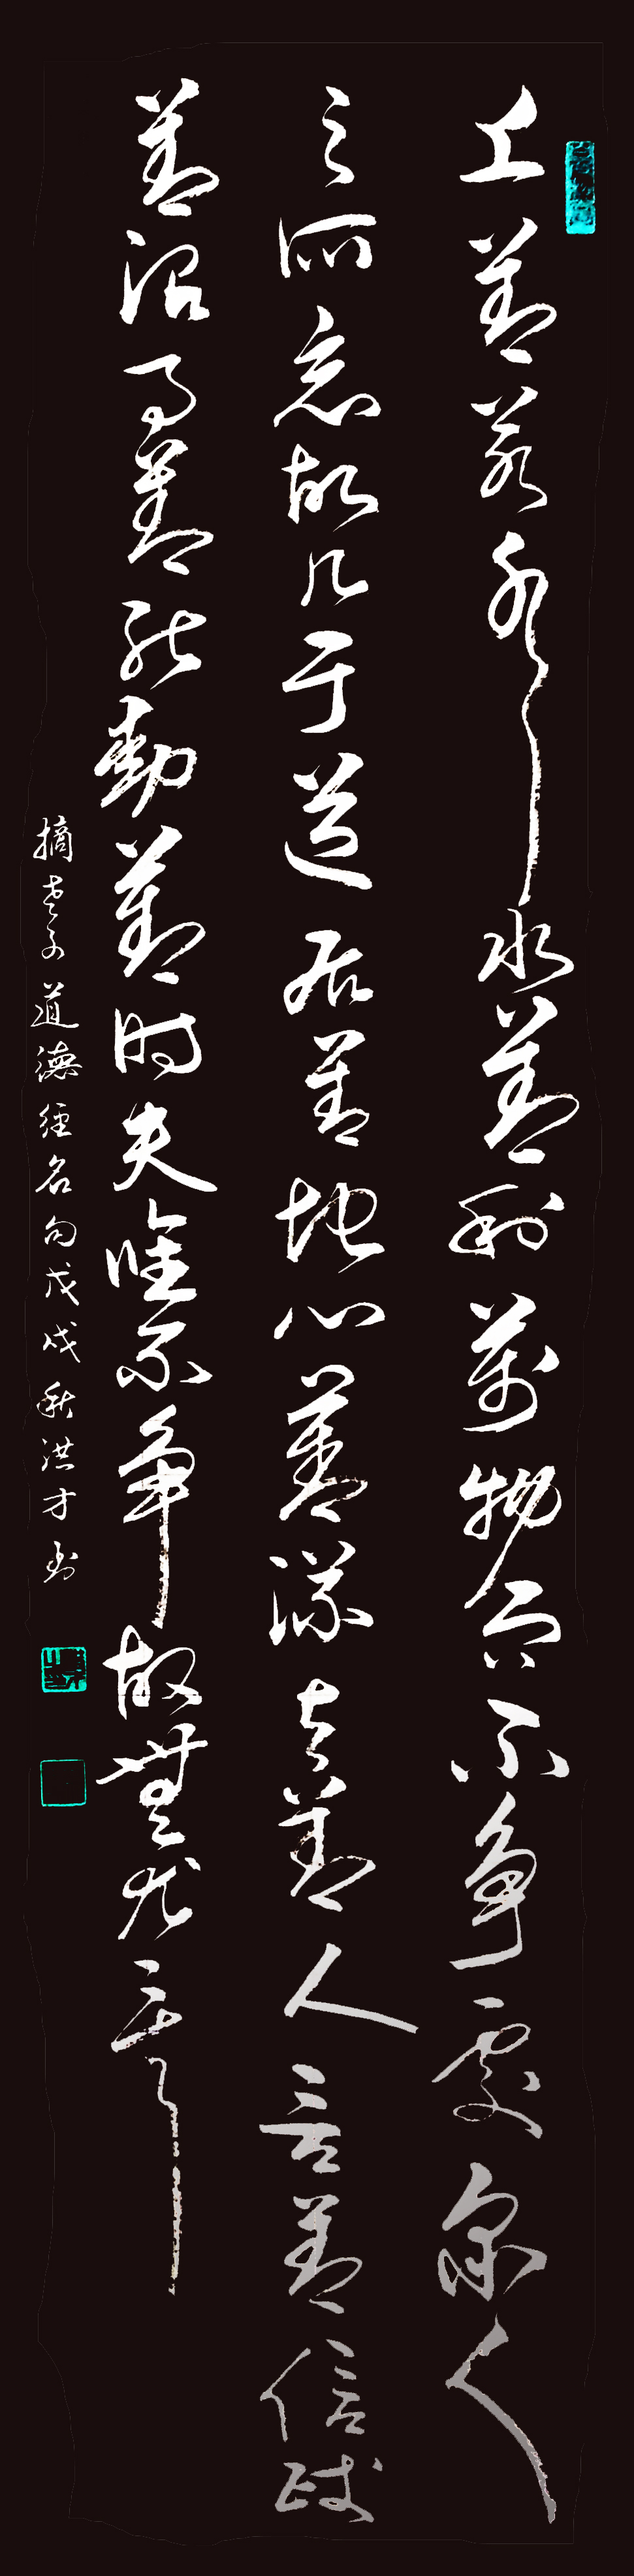 上善若水水善利萬物而不爭處眾人
之所惡故几于道居善地心善淵与善人言善信政
善治事善能動善时夫唯不爭故無尤
摘老子道德經名句戊戌秋洪才书